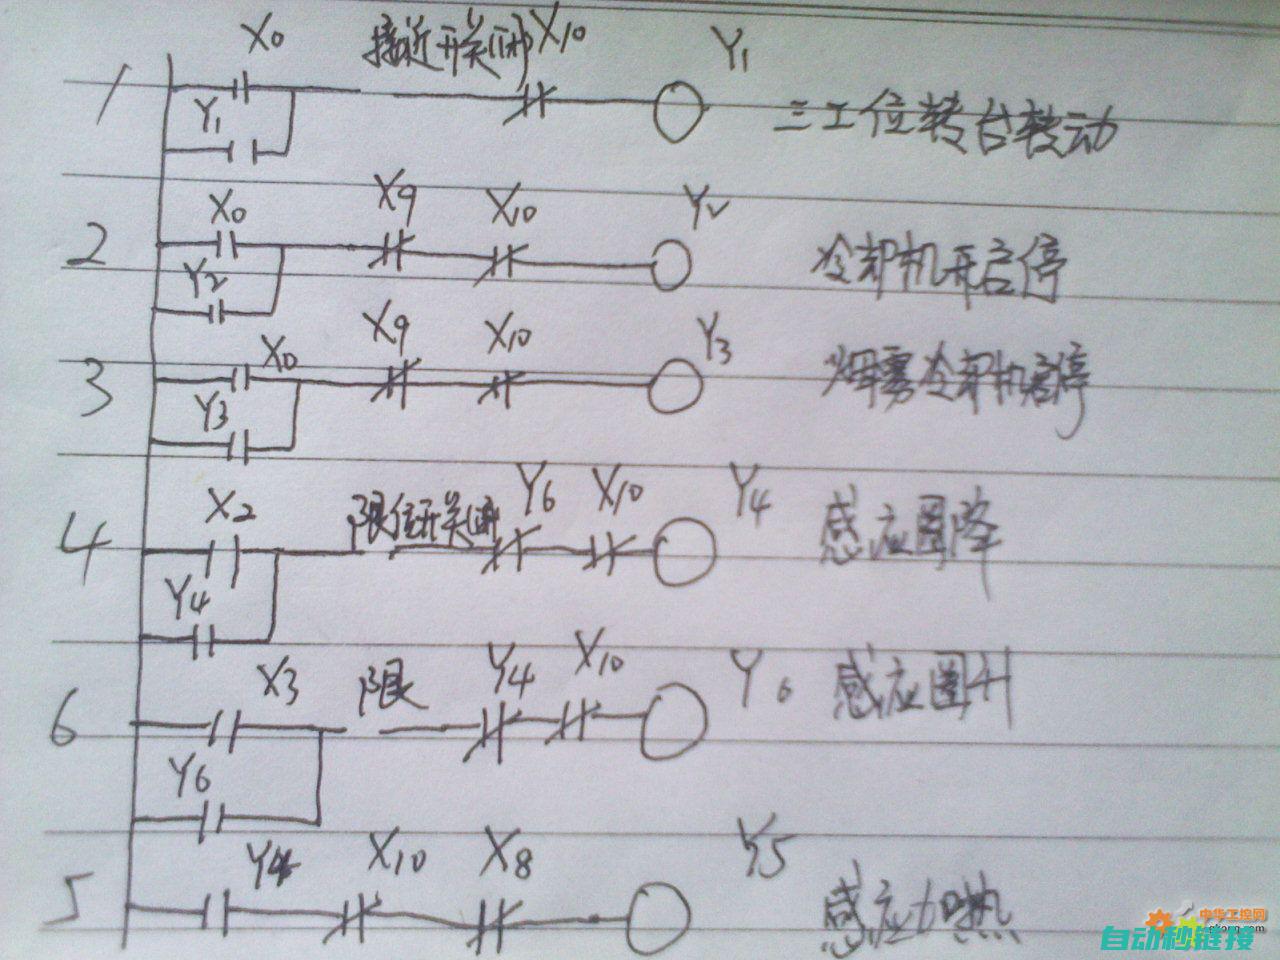 X0 接近开关(断) X10 Y1
1 Y1 三工位转台转动
X0 X9 X10 Y2
2 Y2 冷却机开启停
X0 X9 X10 Y3
3 Y3 烟雾冷却机启停
X2 限位开关(断) Y6 X10 Y4
4 Y4 感应圈降
X3 限 Y4 X10 Y6
6 Y6 感应圈升
Y4 X10 X8 Y5
5 感应加热
中华工控网
gkong.com
自动秒链接